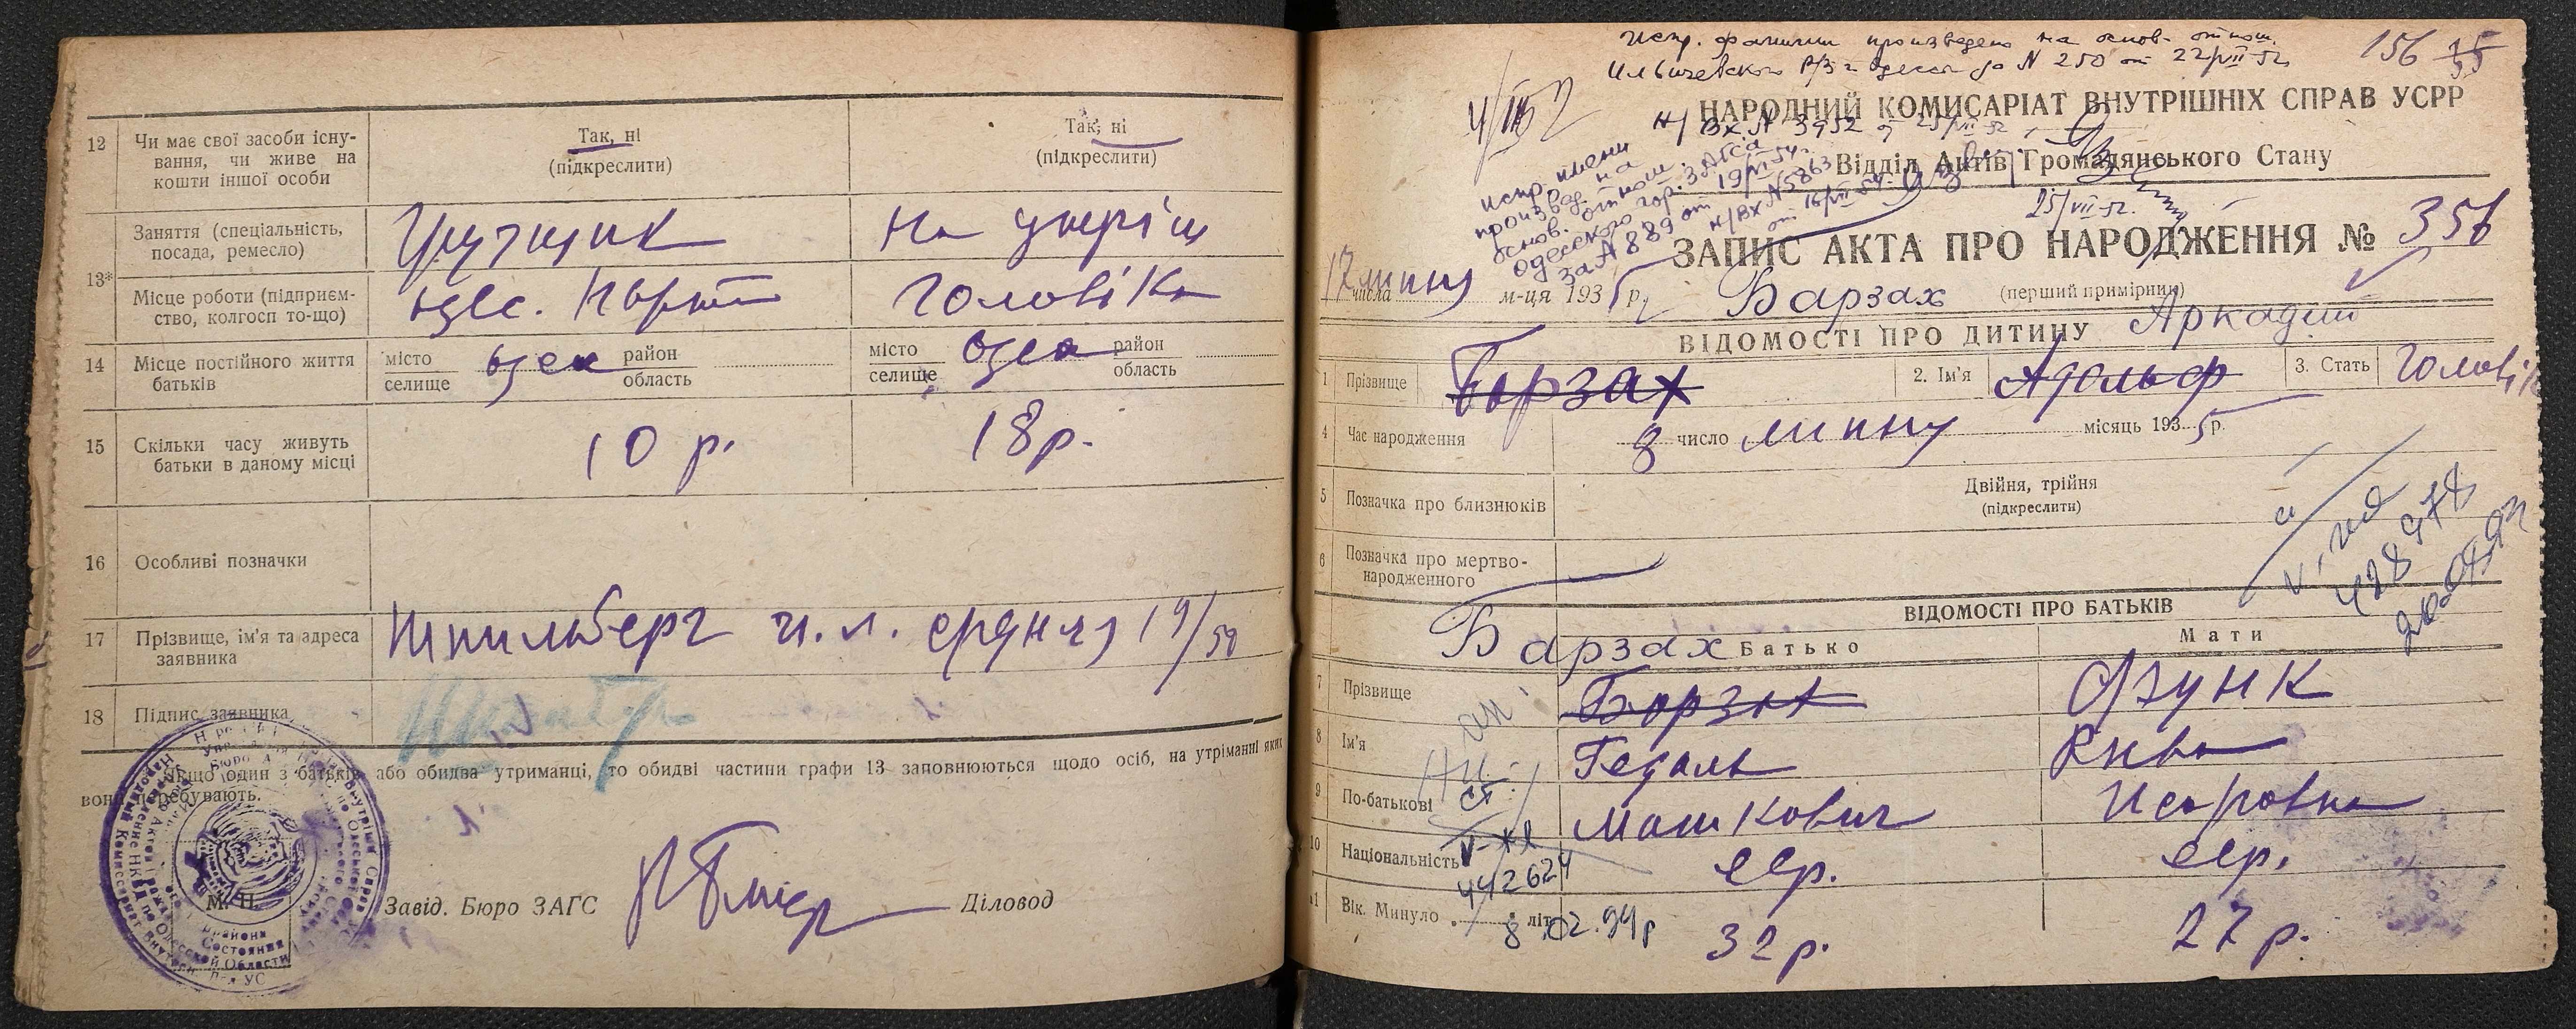 12 Чи має свої засоби існу-
вання, чи живе на
кошти іншої особи
Так, ні
(підкреслити)
Так, ні
(підкреслити)
13* Заняття (спеціальність,
посада, ремесло)
Грузчик
на утрім
Місце роботи (підприєм-
ство, колгосп то-що)
Порт
головіка
14 Місце постійного життя
батьків
місто
селище
район
область
місто
селище
Одеса
район
область
15 Скільки часу живуть
батьки в даному місці
10 р.
18 р.
16 Особливі позначки
17 Прізвище, ім'я та адреса
заявника
Шпильберг
18 Підпис заявника
Якщо один з батьків або обидва утриманці, то обидві частини графи 13 заповнюються щодо осіб, на утриманні яких
вони перебувають.
М. П.
Завід. Бюро ЗАГС
Діловод
Испр. фамилии произведено на основ. отнош.
Ильичевского Р/З г. Одессы за N 250 от 22/VII-52
156
НАРОДНИЙ КОМИСАРІАТ ВНУТРІШНІХ СПРАВ УСРР
н/Вх. N 3952 от 25/VII-52
Відділ Актів Громадянського Стану
25/VII-52.
испр. имени
произвед. на
основ. отнош.
Одесского гор. ЗАГСа
за N 889 от 19/VI-54
н/Вх N 5863
от 16/VII-54
ЗАПИС АКТА ПРО НАРОДЖЕННЯ № 356
17 липня
числа м-ця 1935 р.
(перший примірник)
Барзах
Аркадий
ВІДОМОСТІ ПРО ДИТИНУ
1 Прізвище Борзах 2. Ім'я Адольф 3. Стать головік
4 Час народження 8 число липню місяць 1935 р.
5 Позначка про близнюків
Двійня, трійня
(підкреслити)
6 Позначка про мертво-
народженного
ВІДОМОСТІ ПРО БАТЬКІВ
Барзах Батько
Мати
7 Прізвище Борзах Фзунк
8 Ім'я Гедаль Рива
9 По-батькові Мошкович
10 Національність євр. євр.
442624
11 Вік. Минуло літ 32 р. 27 р.
8.02.94р